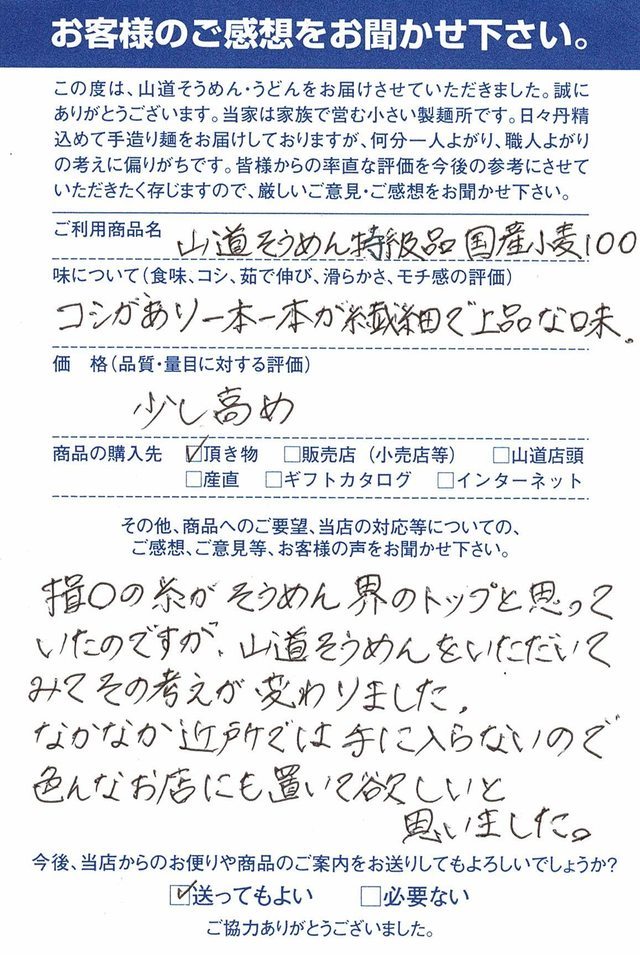 お客様のご感想をお聞かせ下さい。
この度は、山道そうめん・うどんをお届けさせていただきました。誠に
ありがとうございます。当家は家族で営む小さい製麺所です。日々丹精
込めて手造り麺をお届けしておりますが、何分一人よがり、職人よがり
の考えに偏りがちです。皆様からの率直な評価を今後の参考にさせて
いただきたく存じますので、厳しいご意見・ご感想をお聞かせ下さい。
ご利用商品名 山道そうめん特級品国産小麦100
味について(食味、コシ、茹で伸び、滑らかさ、モチ感の評価)
コシがあり一本一本が繊細で上品な味。
価 格(品質・量目に対する評価)
少し高め
商品の購入先 ☑頂き物 □販売店(小売店等) □山道店頭
□産直 □ギフトカタログ □インターネット
その他、商品へのご要望、当店の対応等についての、
ご感想、ご意見等、お客様の声をお聞かせ下さい。
揖〇の糸がそうめん界のトップと思って
いたのですが、山道そうめんをいただいて
みてその考えが変わりました。
なかなか近所では手に入らないので
色んなお店にも置いて欲しいと
思いました。
今後、当店からのお便りや商品のご案内をお送りしてもよろしいでしょうか?
☑送ってもよい □必要ない
ご協力ありがとうございました。